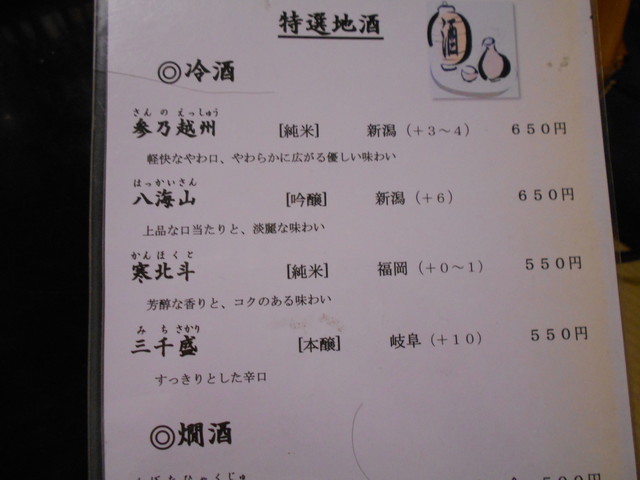 特選地酒
酒
◎冷酒
さんの えっしゅう
参乃越州 [純米] 新潟(+3～4) 650円
軽快なやわ口、やわらかに広がる優しい味わい
はっかいさん
八海山 [吟醸] 新潟(+6) 650円
上品な口当たりと、淡麗な味わい
かんほくと
寒北斗 [純米] 福岡(+0～1) 550円
芳醇な香りと、コクのある味わい
みちさかり
三千盛 [本醸] 岐阜(+10) 550円
すっきりとした辛口
◎燗酒